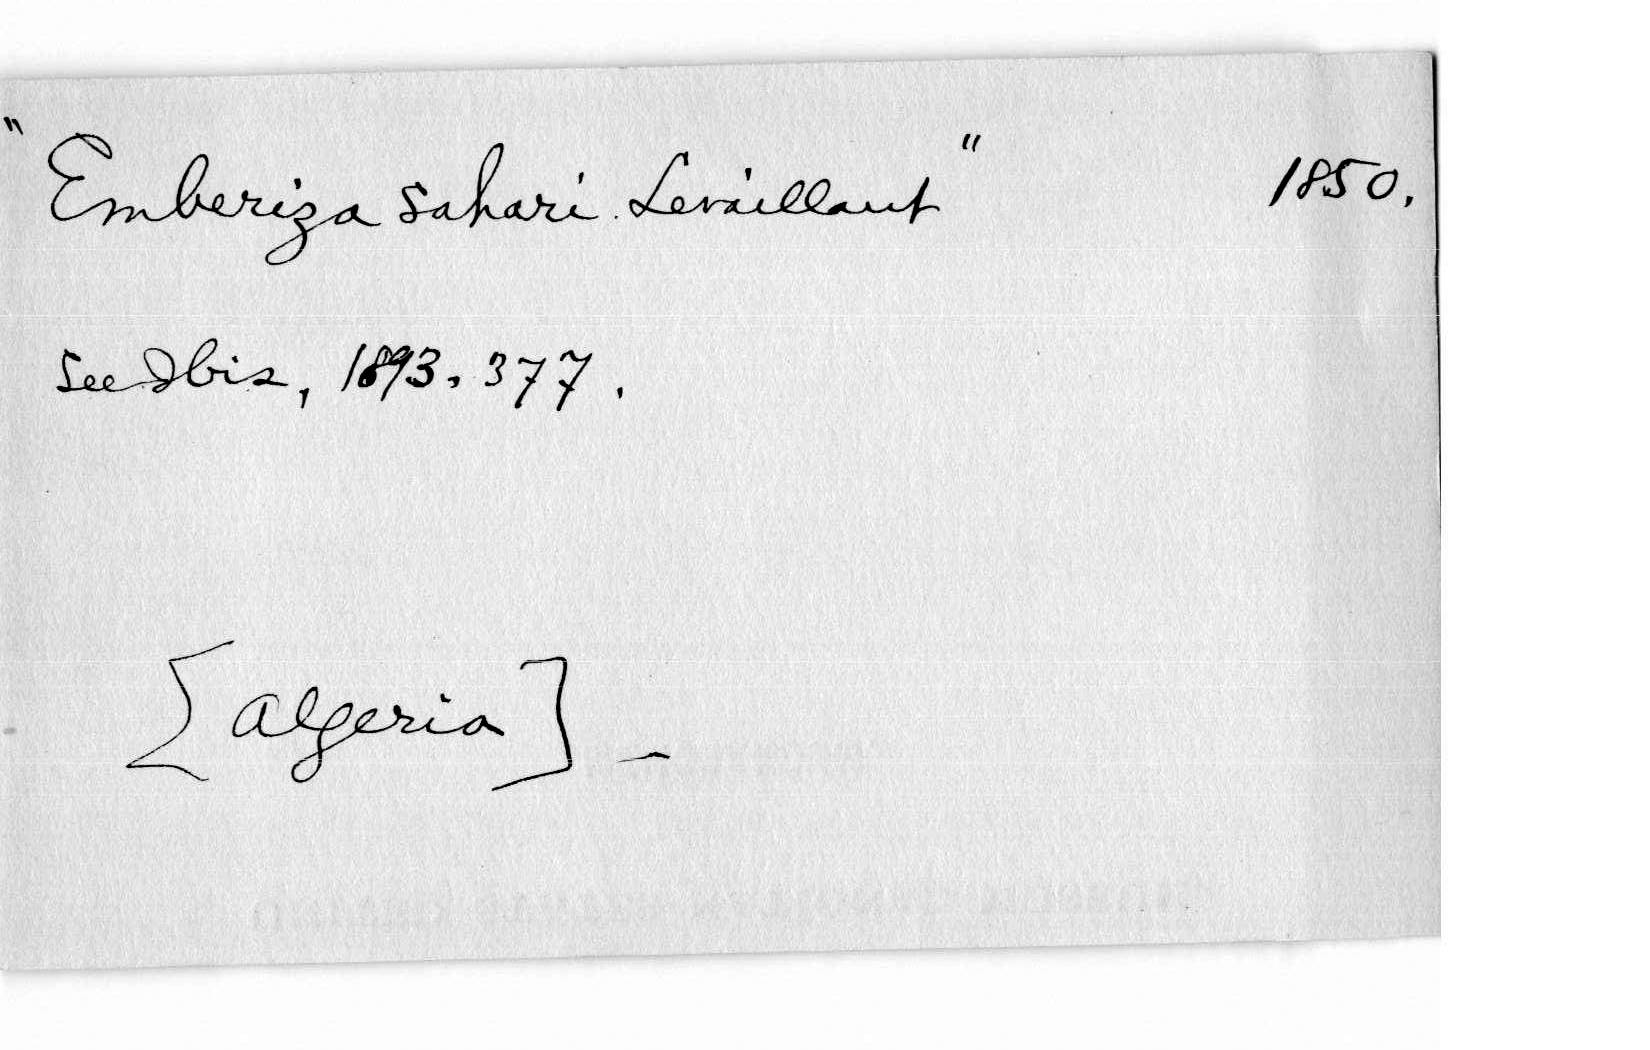 "Emberiza sahari Levaillant" 1850.
See Ibis, 1893. 377.
[Algeria] –